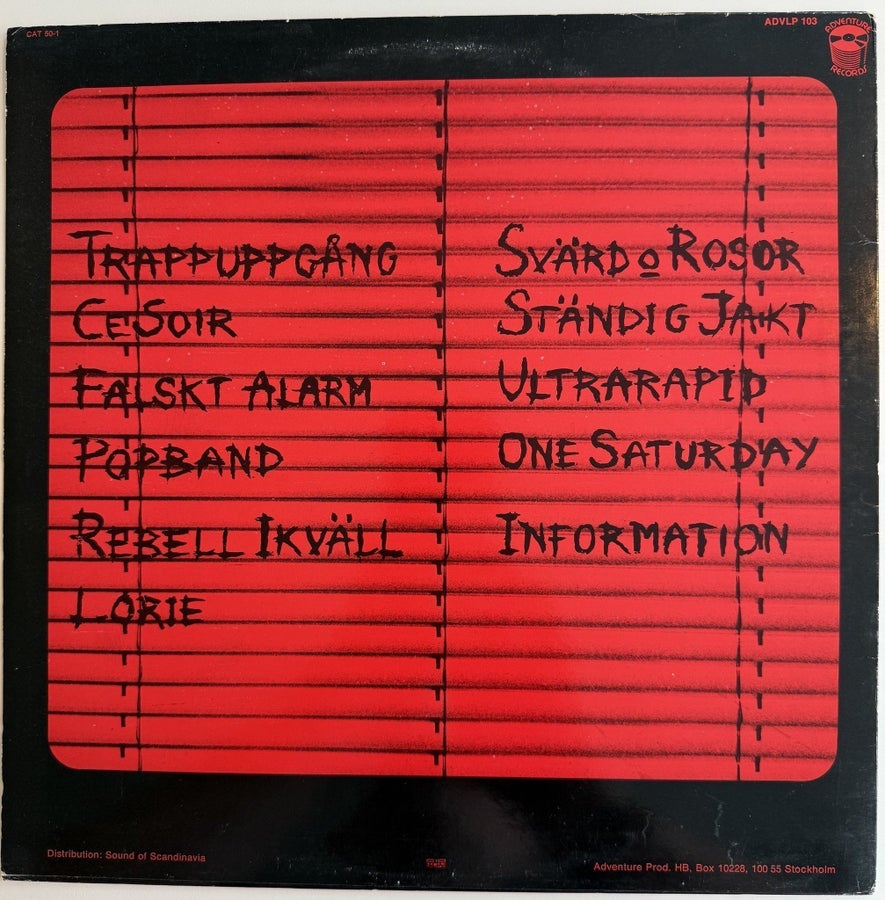 CAT 50-1
ADVLP 103
ADVENTURE
RECORDS
TRAPPUPPGÅNG
CE SOIR
FALSKT ALARM
POPBAND
REBELL IKVÄLL
LORIE
SVÄRD O ROSOR
STÄNDIG JAKT
ULTRARAPID
ONE SATURDAY
INFORMATION
Distribution: Sound of Scandinavia
Adventure Prod. HB, Box 10228, 100 55 Stockholm